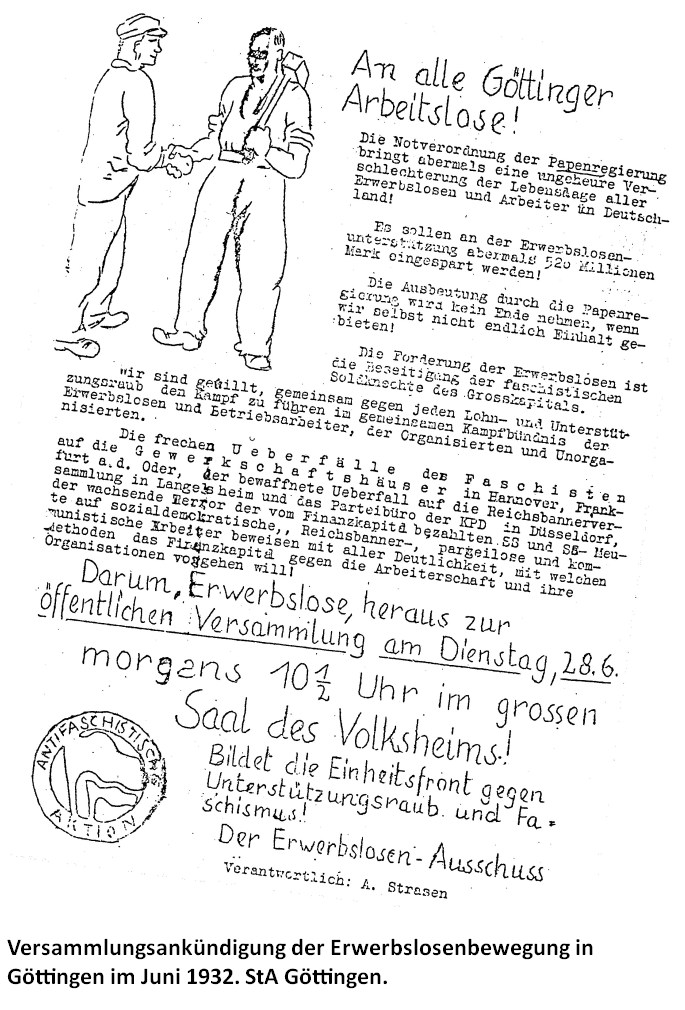 An alle Göttinger
Arbeitslose!
Die Notverordnung der Papenregierung
bringt abermals eine ungeheure Ver-
schlechterung der Lebenslage aller
Erwerbslosen und Arbeiter in Deutsch-
land!
Es sollen an der Erwerbslosen-
unterstützung abermals 520 Millionen
Mark eingespart werden!
Die Ausbeutung durch die Papenre-
gierung wird kein Ende nehmen, wenn
wir selbst nicht endlich Einhalt ge-
bieten!
Die Forderung der Erwerbslosen ist
die Beseitigung der faschistischen
Soldknechte des Grosskapitals.
Wir sind gewillt, gemeinsam gegen jeden Lohn- und Unterstüt-
zungsraub den Kampf zu führen im gemeinsamen Kampfbündnis der
Erwerbslosen und Betriebsarbeiter, der Organisierten und Unorga-
nisierten.
Die frechen Ueberfälle des Faschisten
auf die Gewerkschaftshäuser in Hannover, Frank-
furt a.d. Oder, der bewaffnete Ueberfall auf die Reichsbannerver-
sammlung in Langelsheim und das Parteibüro der KPD in Düsseldorf,
der wachsende Terror der vom Finanzkapital bezahlten SS und SA- Meu-
te auf sozialdemokratische,, Reichsbanner-, parteilose und kom-
munistische Arbeiter beweisen mit aller Deutlichkeit, mit welchen
Methoden das Finanzkapital gegen die Arbeiterschaft und ihre
Organisationen vorgehen will!
Darum, Erwerbslose, heraus zur
öffentlichen Versammlung am Dienstag, 28.6.
morgens 10 1/2 Uhr im grossen
Saal des Volksheims!
Bildet die Einheitsfront gegen
Unterstützungsraub und Fa=
schismus!
Der Erwerbslosen-Ausschuss
Verantwortlich: A. Strasen
ANTIFASCHISTISCHE
AKTION
Versammlungsankündigung der Erwerbslosenbewegung in
Göttingen im Juni 1932. StA Göttingen.